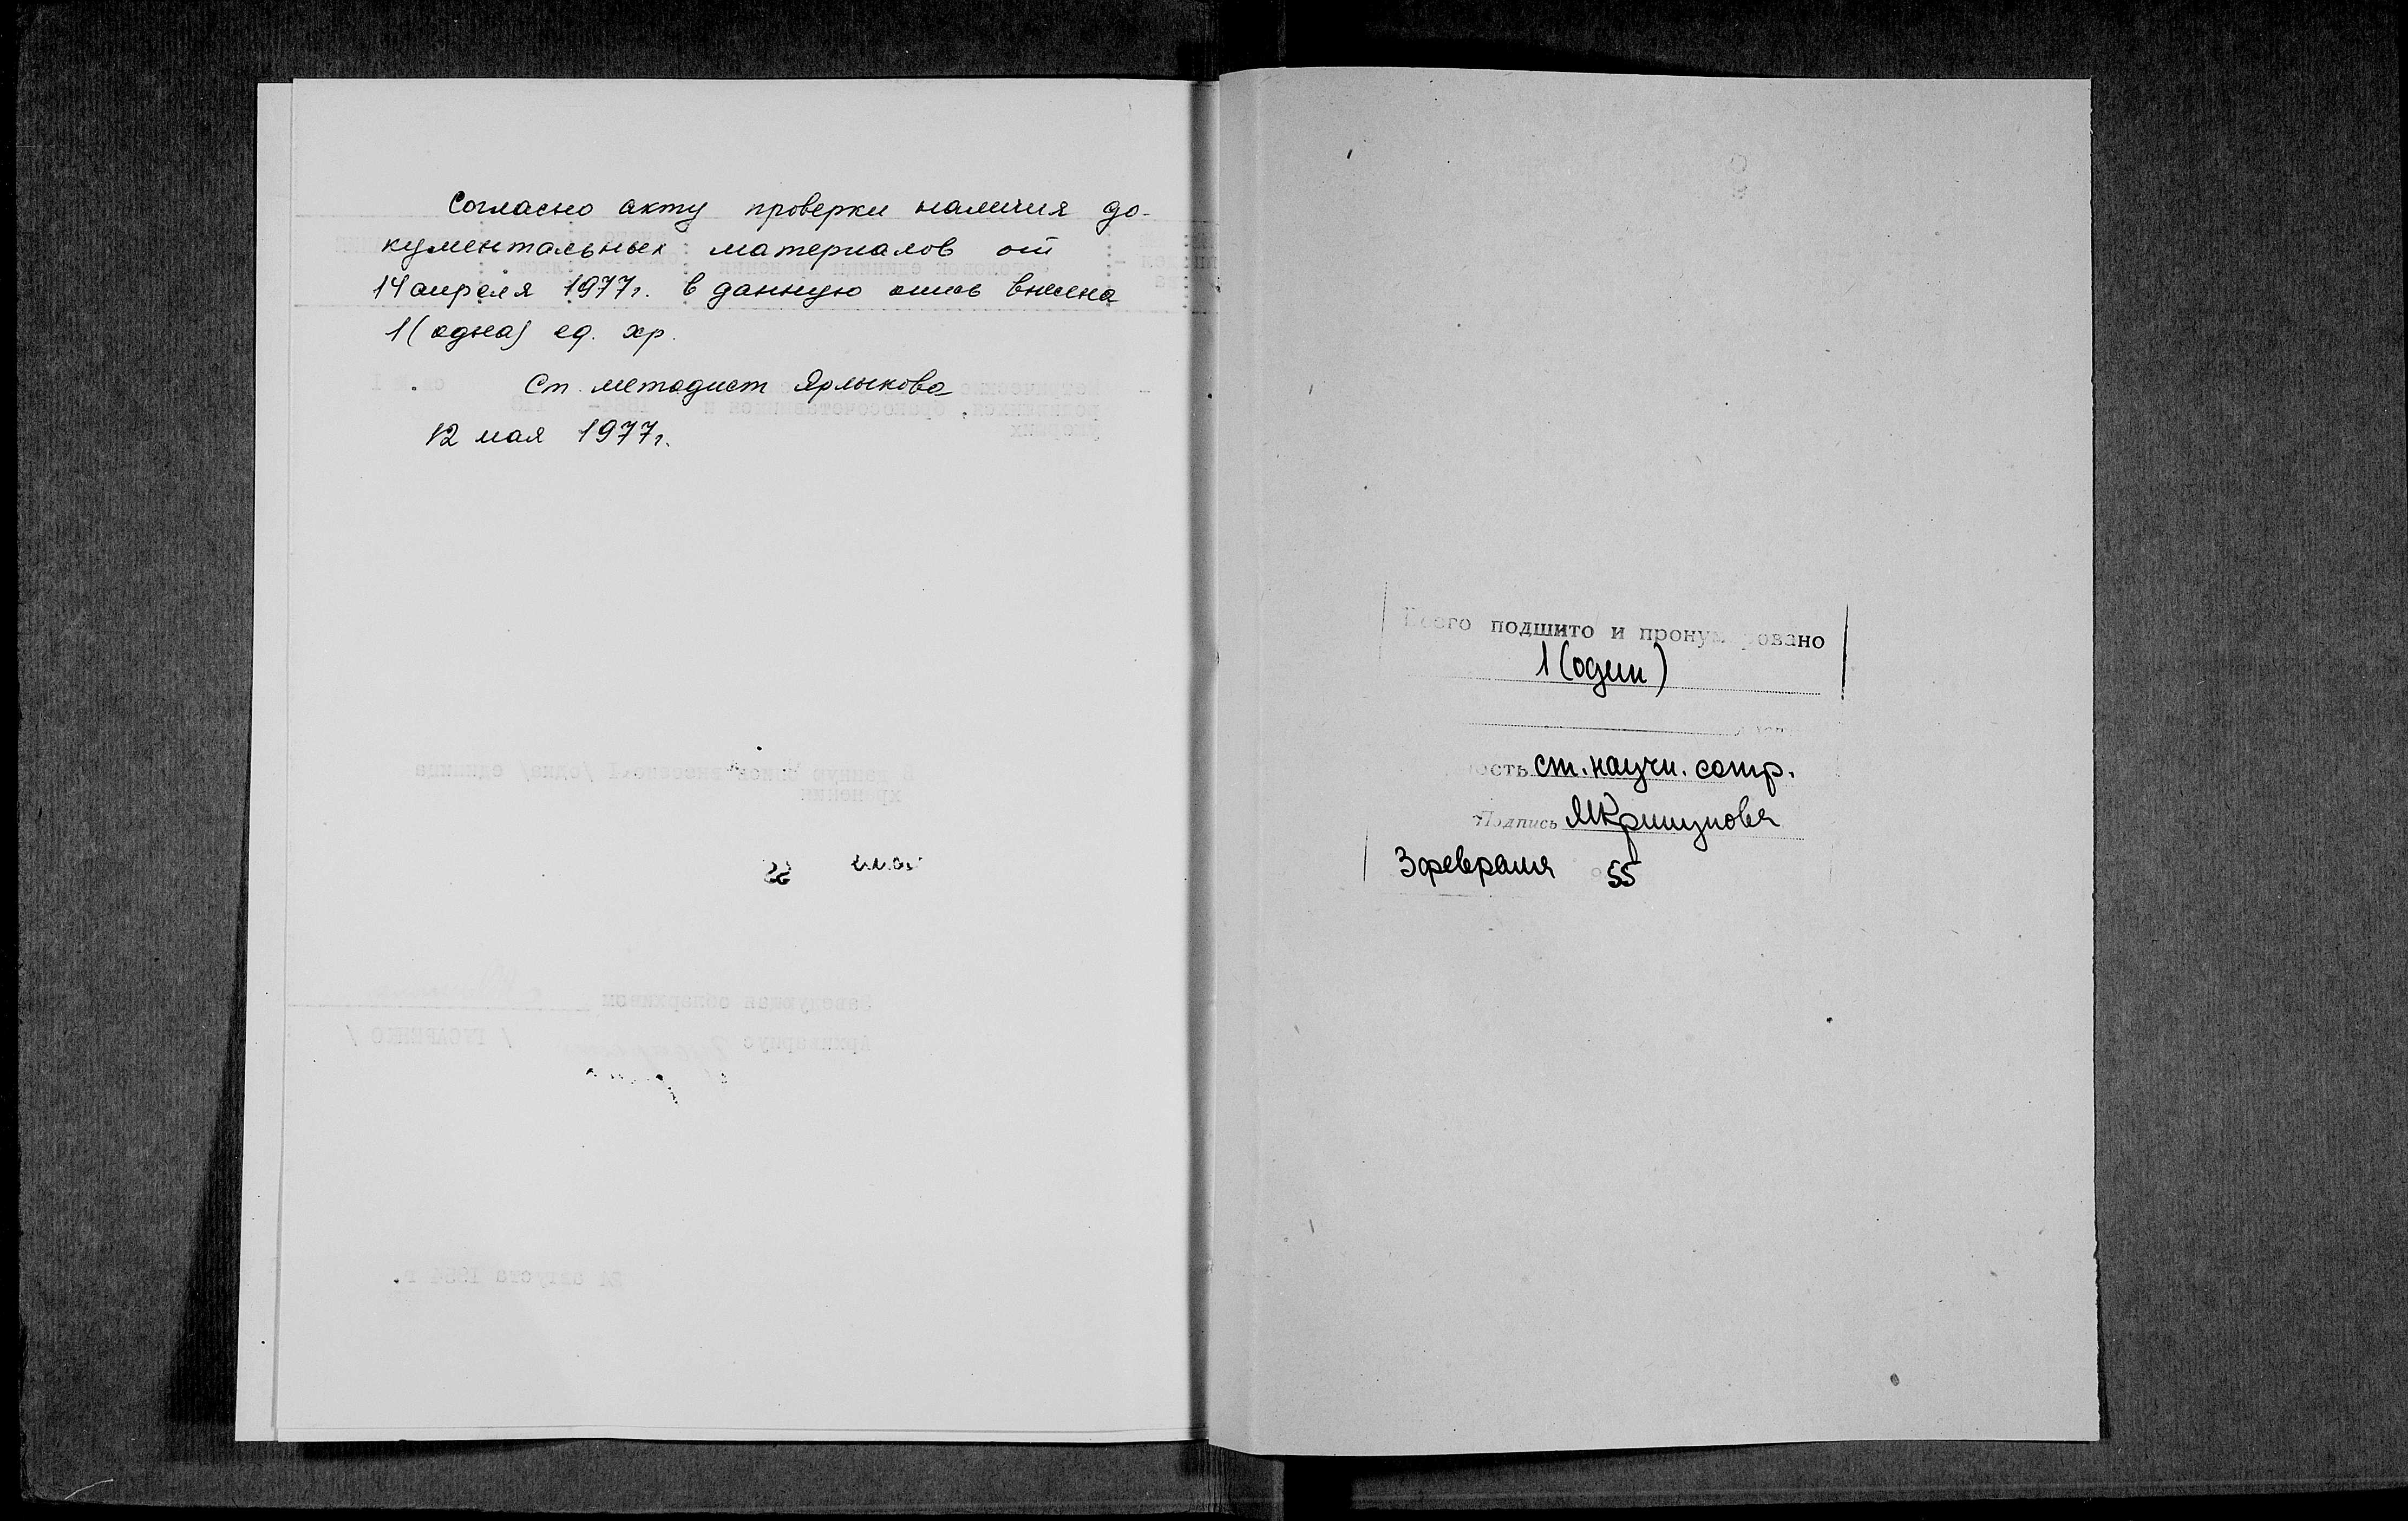 Согласно акту проверки наличия до-
кументальных материалов от
14 апреля 1977г. в данную опись внесена
1 (одна) ед. хр.
Ст. методист Ярлыкова
12 мая 1977г.
Всего подшито и пронумеровано
1 (один)
ст. научн. сотр.
Подпись
3 февраля 55